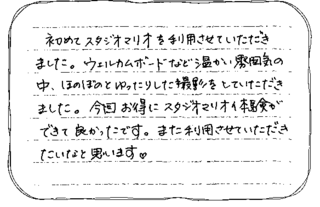 初めてスタジオマリオを利用させていただき
ました。ウェルカムボードなどう温かい雰囲気の
中、ほのぼのとゆったりした撮影をしていただき
ました。今回お得にスタジオマリオ体験が
できて良かったです。また利用させていただき
たいなと思います♡